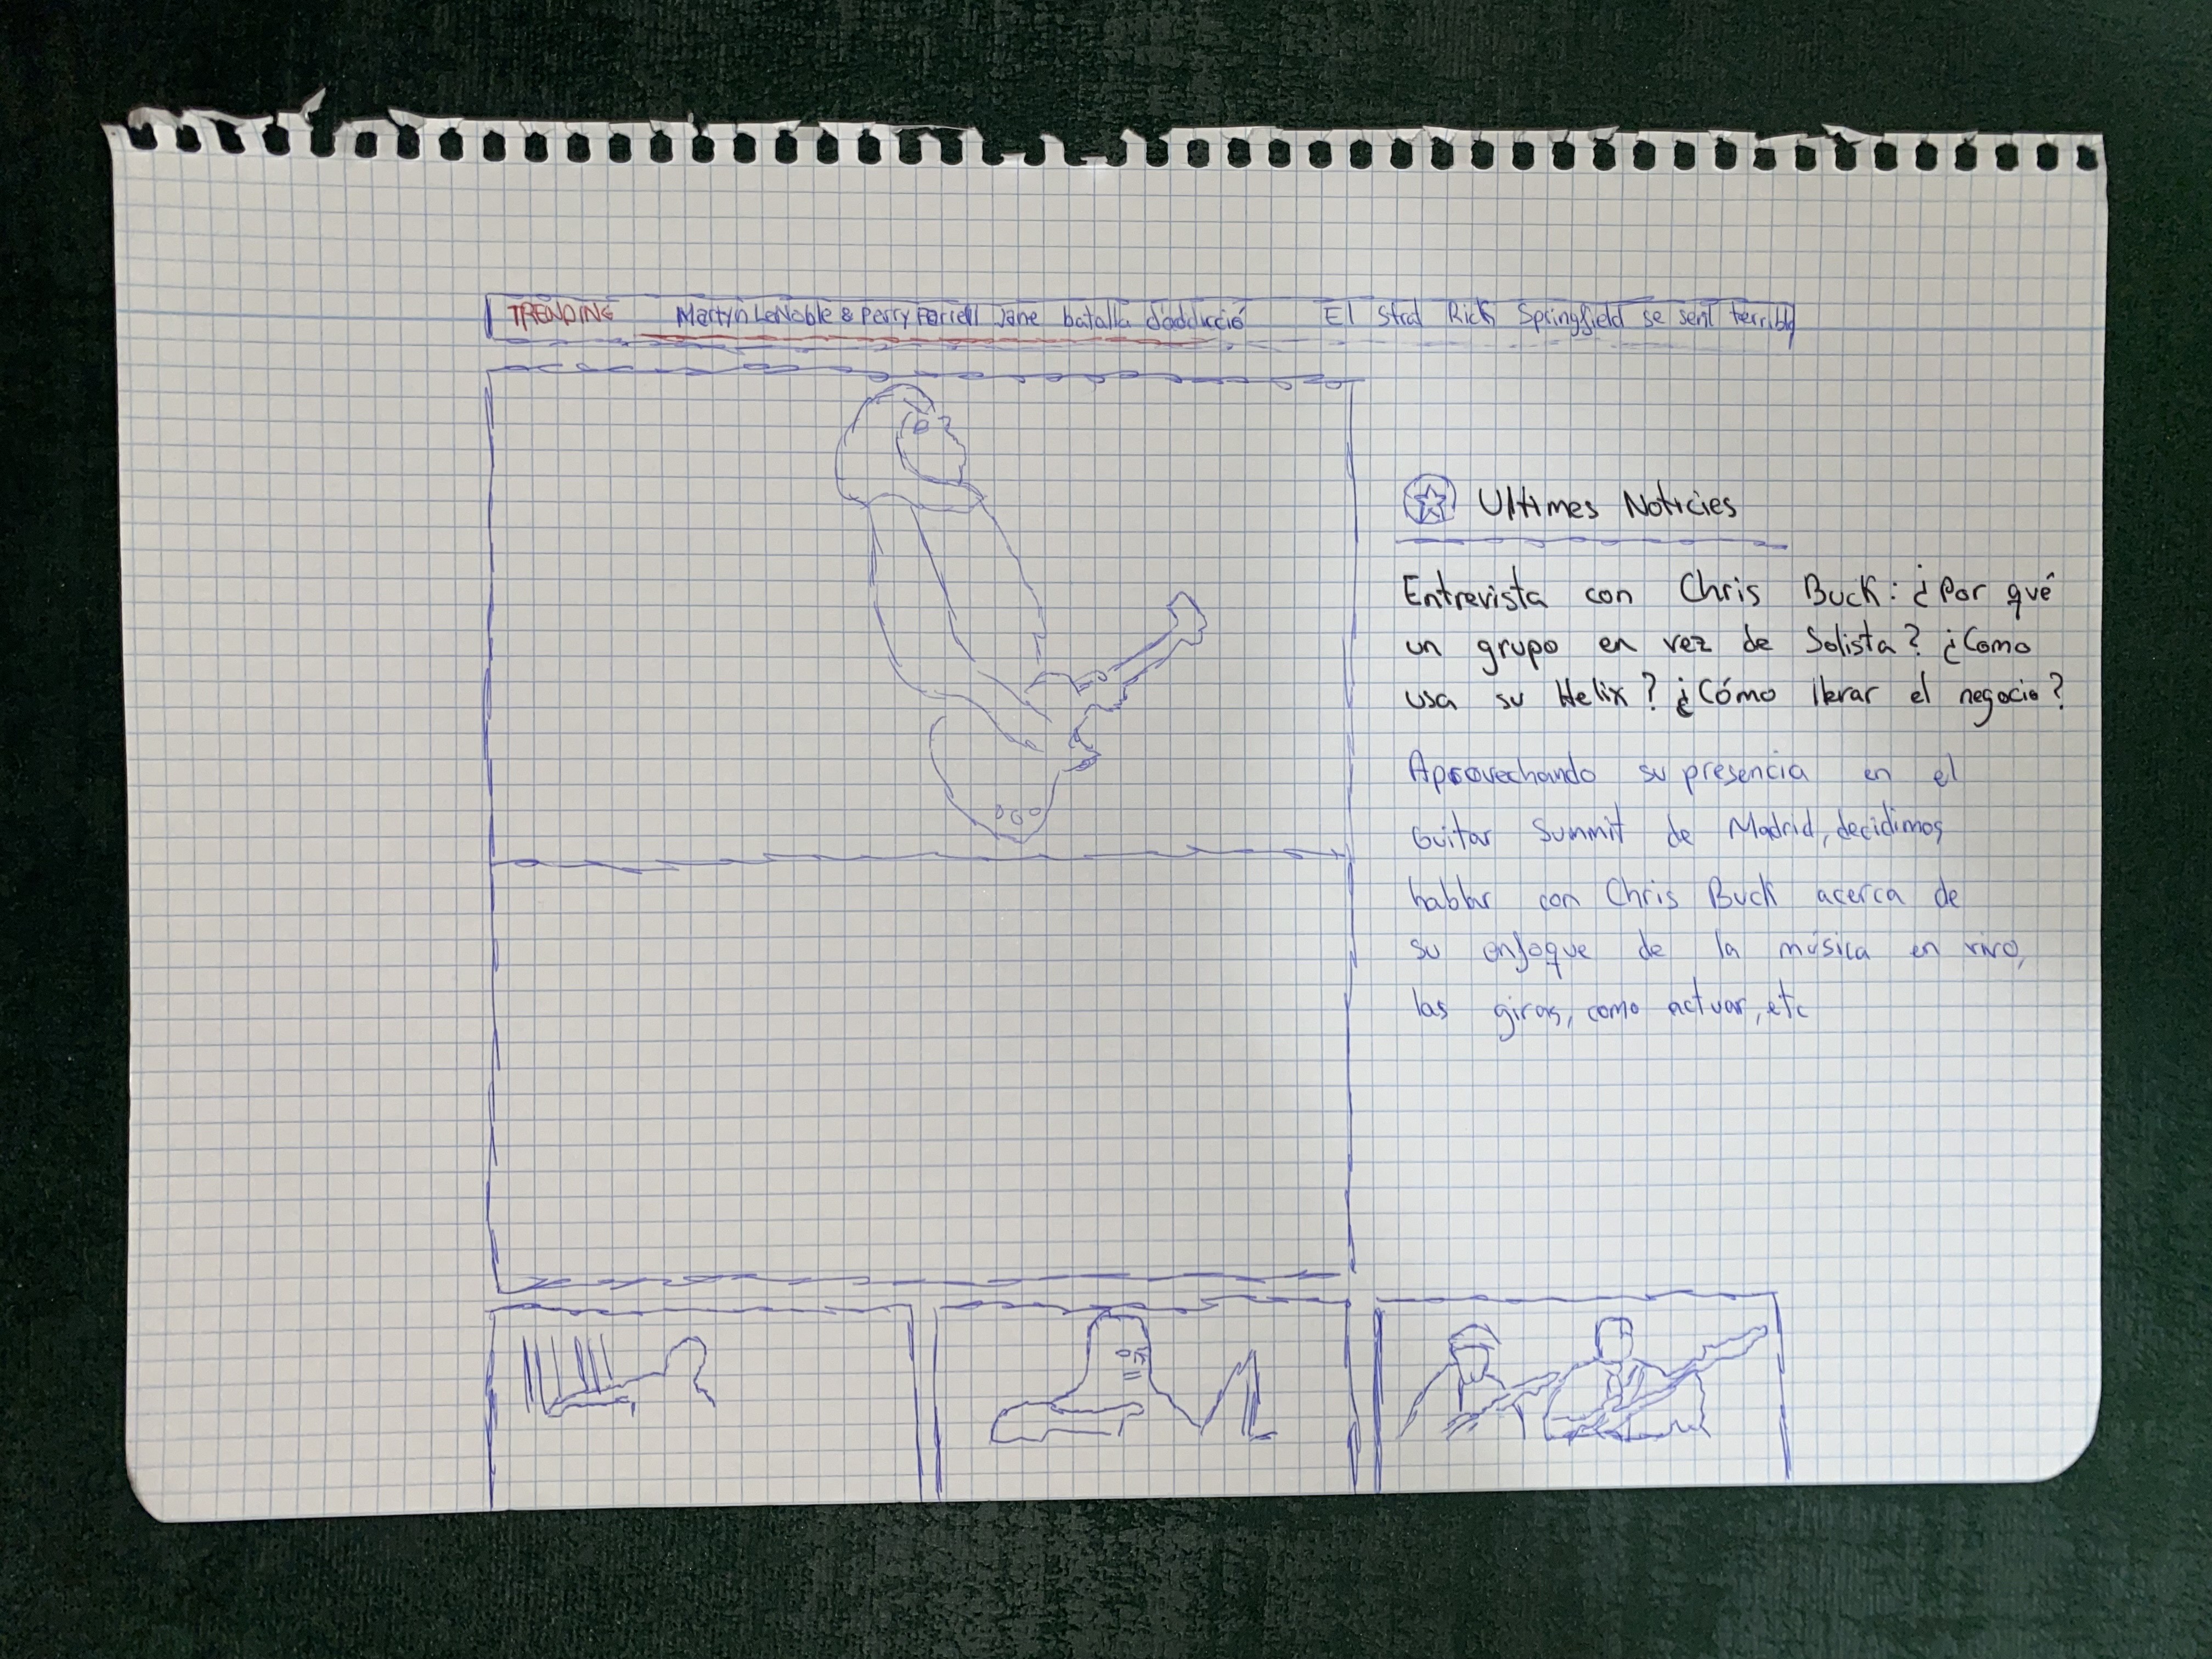 TRENDING Martyn LeNoble & Perry Farrell Jane batalla d'addicció El strat Rick Springfield se sent terrible
Ultimes Noticies
Entrevista con Chris Buck: ¿Por qué
un grupo en vez de Solista? ¿Como
usa su Helix? ¿Cómo llevar el negocio?
Aprovechando su presencia en el
Guitar Summit de Madrid, decidimos
hablar con Chris Buck acerca de
su enfoque de la música en vivo,
las giras, como actuar, etc